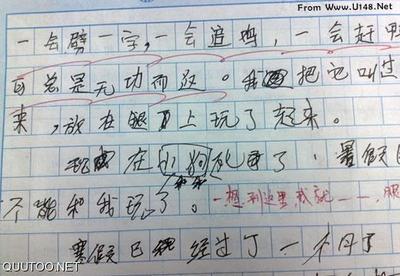 From Www.U148.Net
一会劈一字,一会追鸡,一会赶鸭
可总是无功而返。我把它叫过
来,放在腿上玩了起来。
现在小狗死了,暑假
不能和我玩了。一想到这里,我就——,眼
暑假已经过了一个月了
QUUTOO.NET